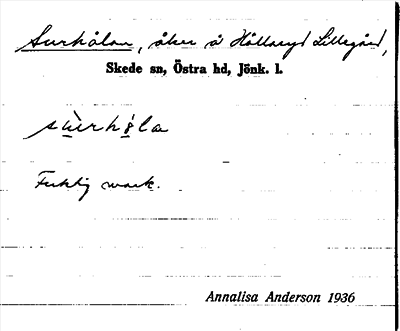 Surhålan, åker å Hållaryd Lillegård,
Skede sn, Östra hd, Jönk. l.
su̇̀rhǫla
Fuktig mark.
Annalisa Anderson 1936